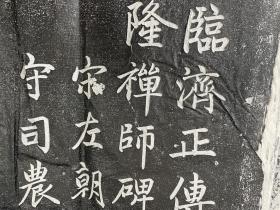 臨濟正傳
隆禪師碑
宋左朝
守司農